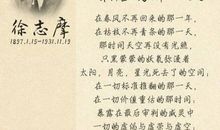 徐志摩
1897.1.15~1931.11.19
在春风不再回来的那一年,
在枯枝不再青条的那一天,
那时间天空再没有光照,
只黑蒙蒙的妖氛弥漫着
太阳,月亮,星光死去了的空间;
在一切标准推翻的那一天,
在一切价值重估的那时间:
暴露在最后审判的威灵中
一切的虚伪与虚荣与虚空: